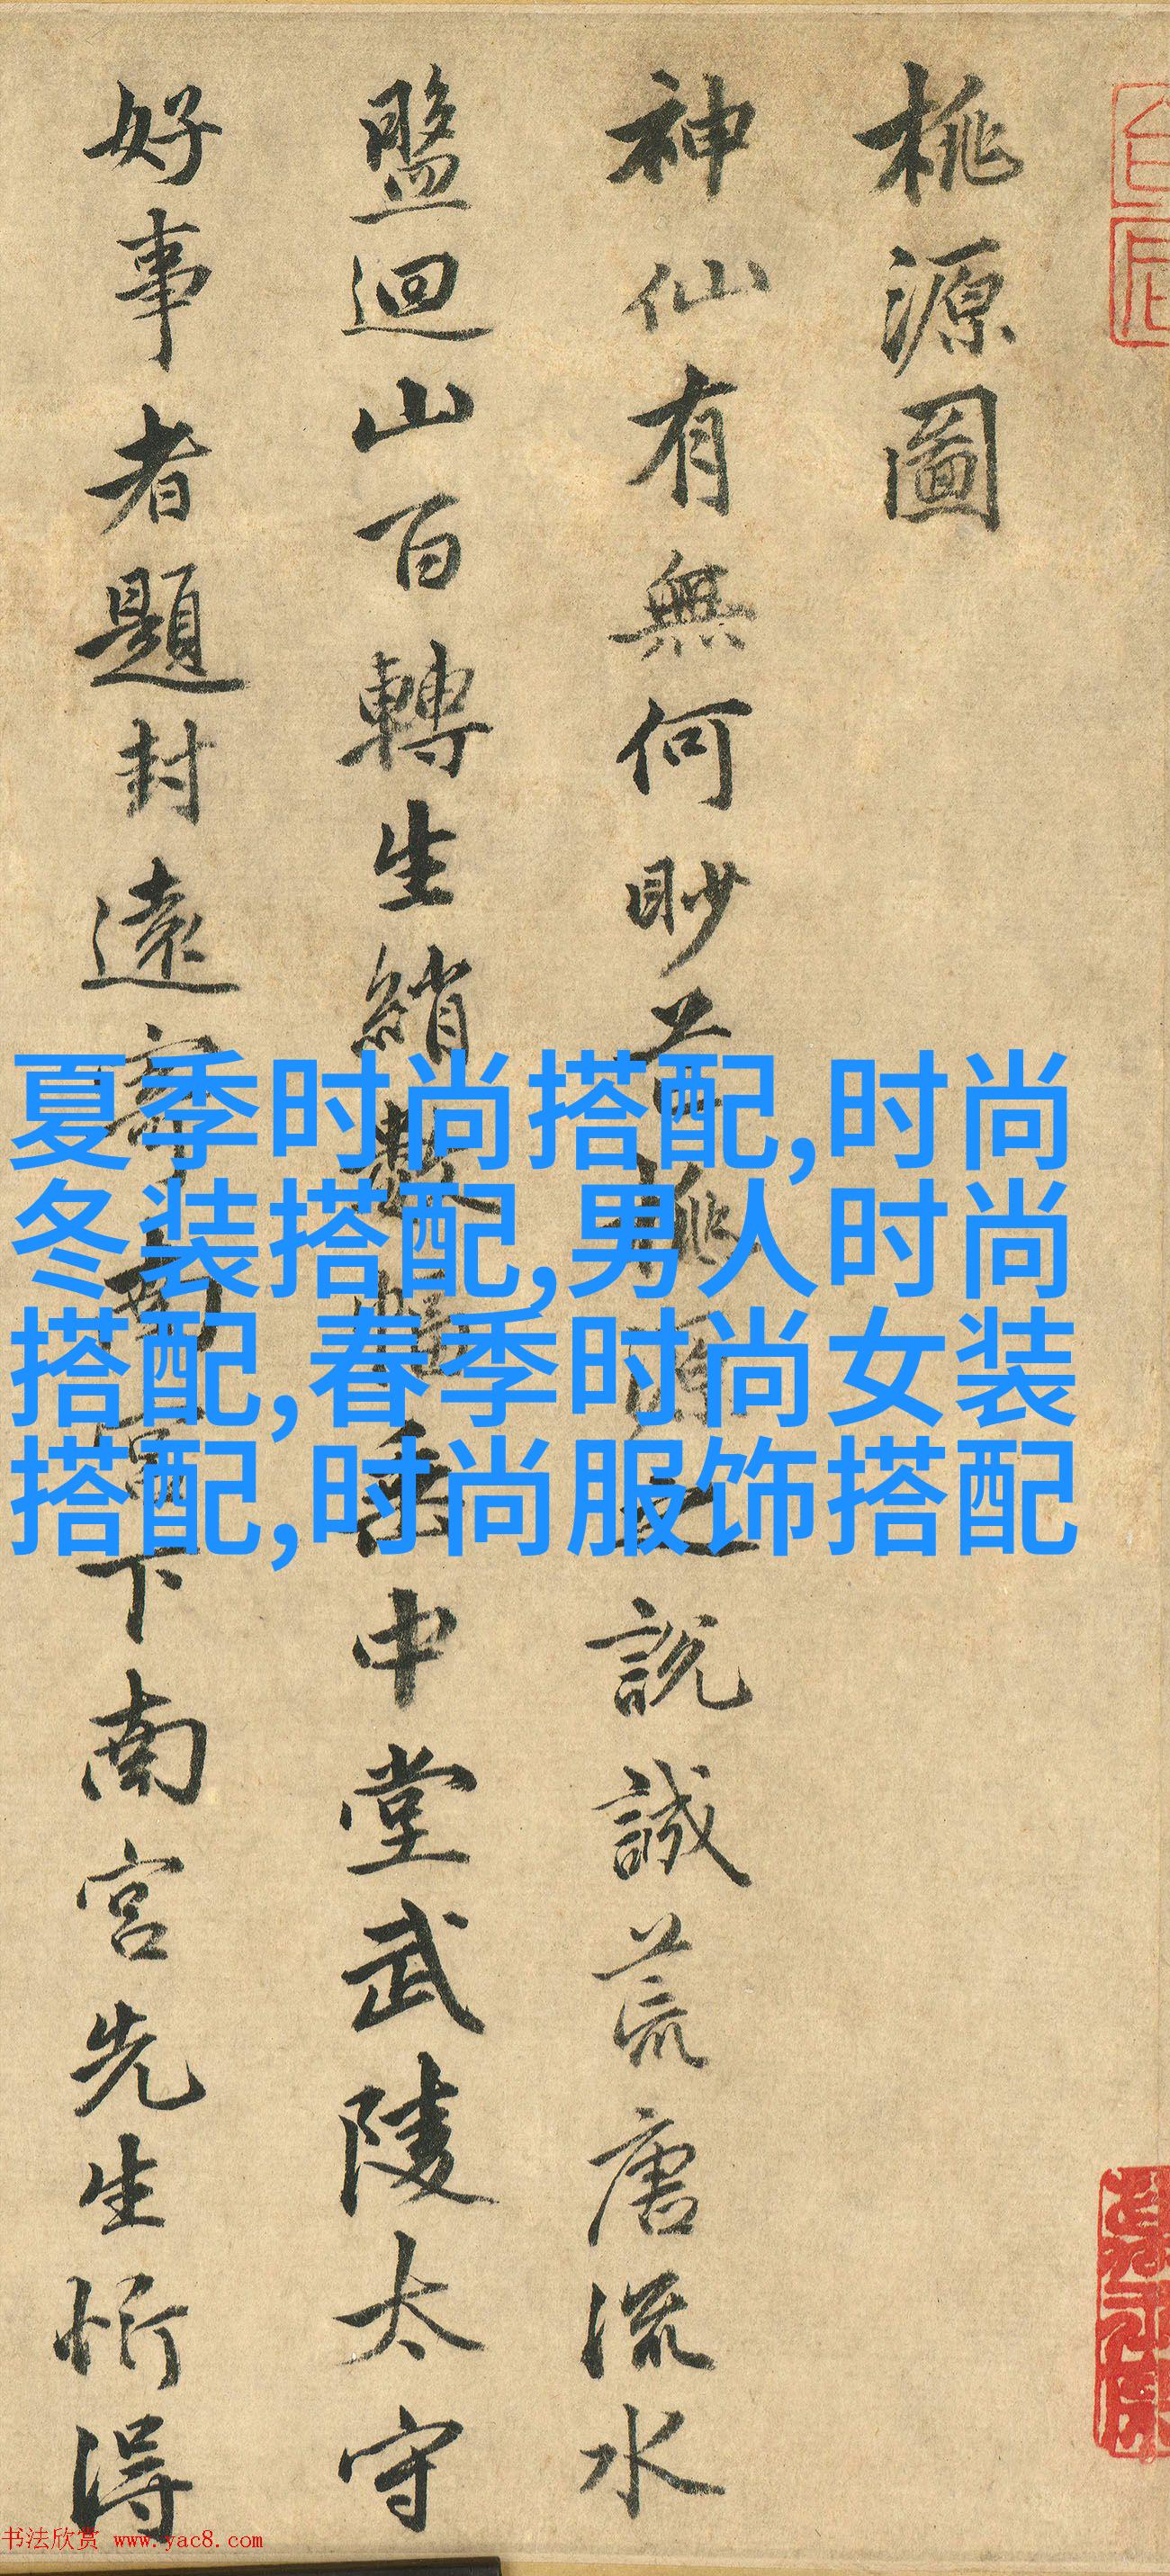 桃源圖
神仙有無何眇芒桃源之說誠荒唐流水
盤迴山百轉生綃數幅垂中堂武陵太守
好事者題封遠寄南宮下南宮先生忻得
夏季时尚搭配,时尚
冬装搭配,男人时尚
搭配,春季时尚女装
搭配,时尚服饰搭配
书法欣赏 www.yac8.com